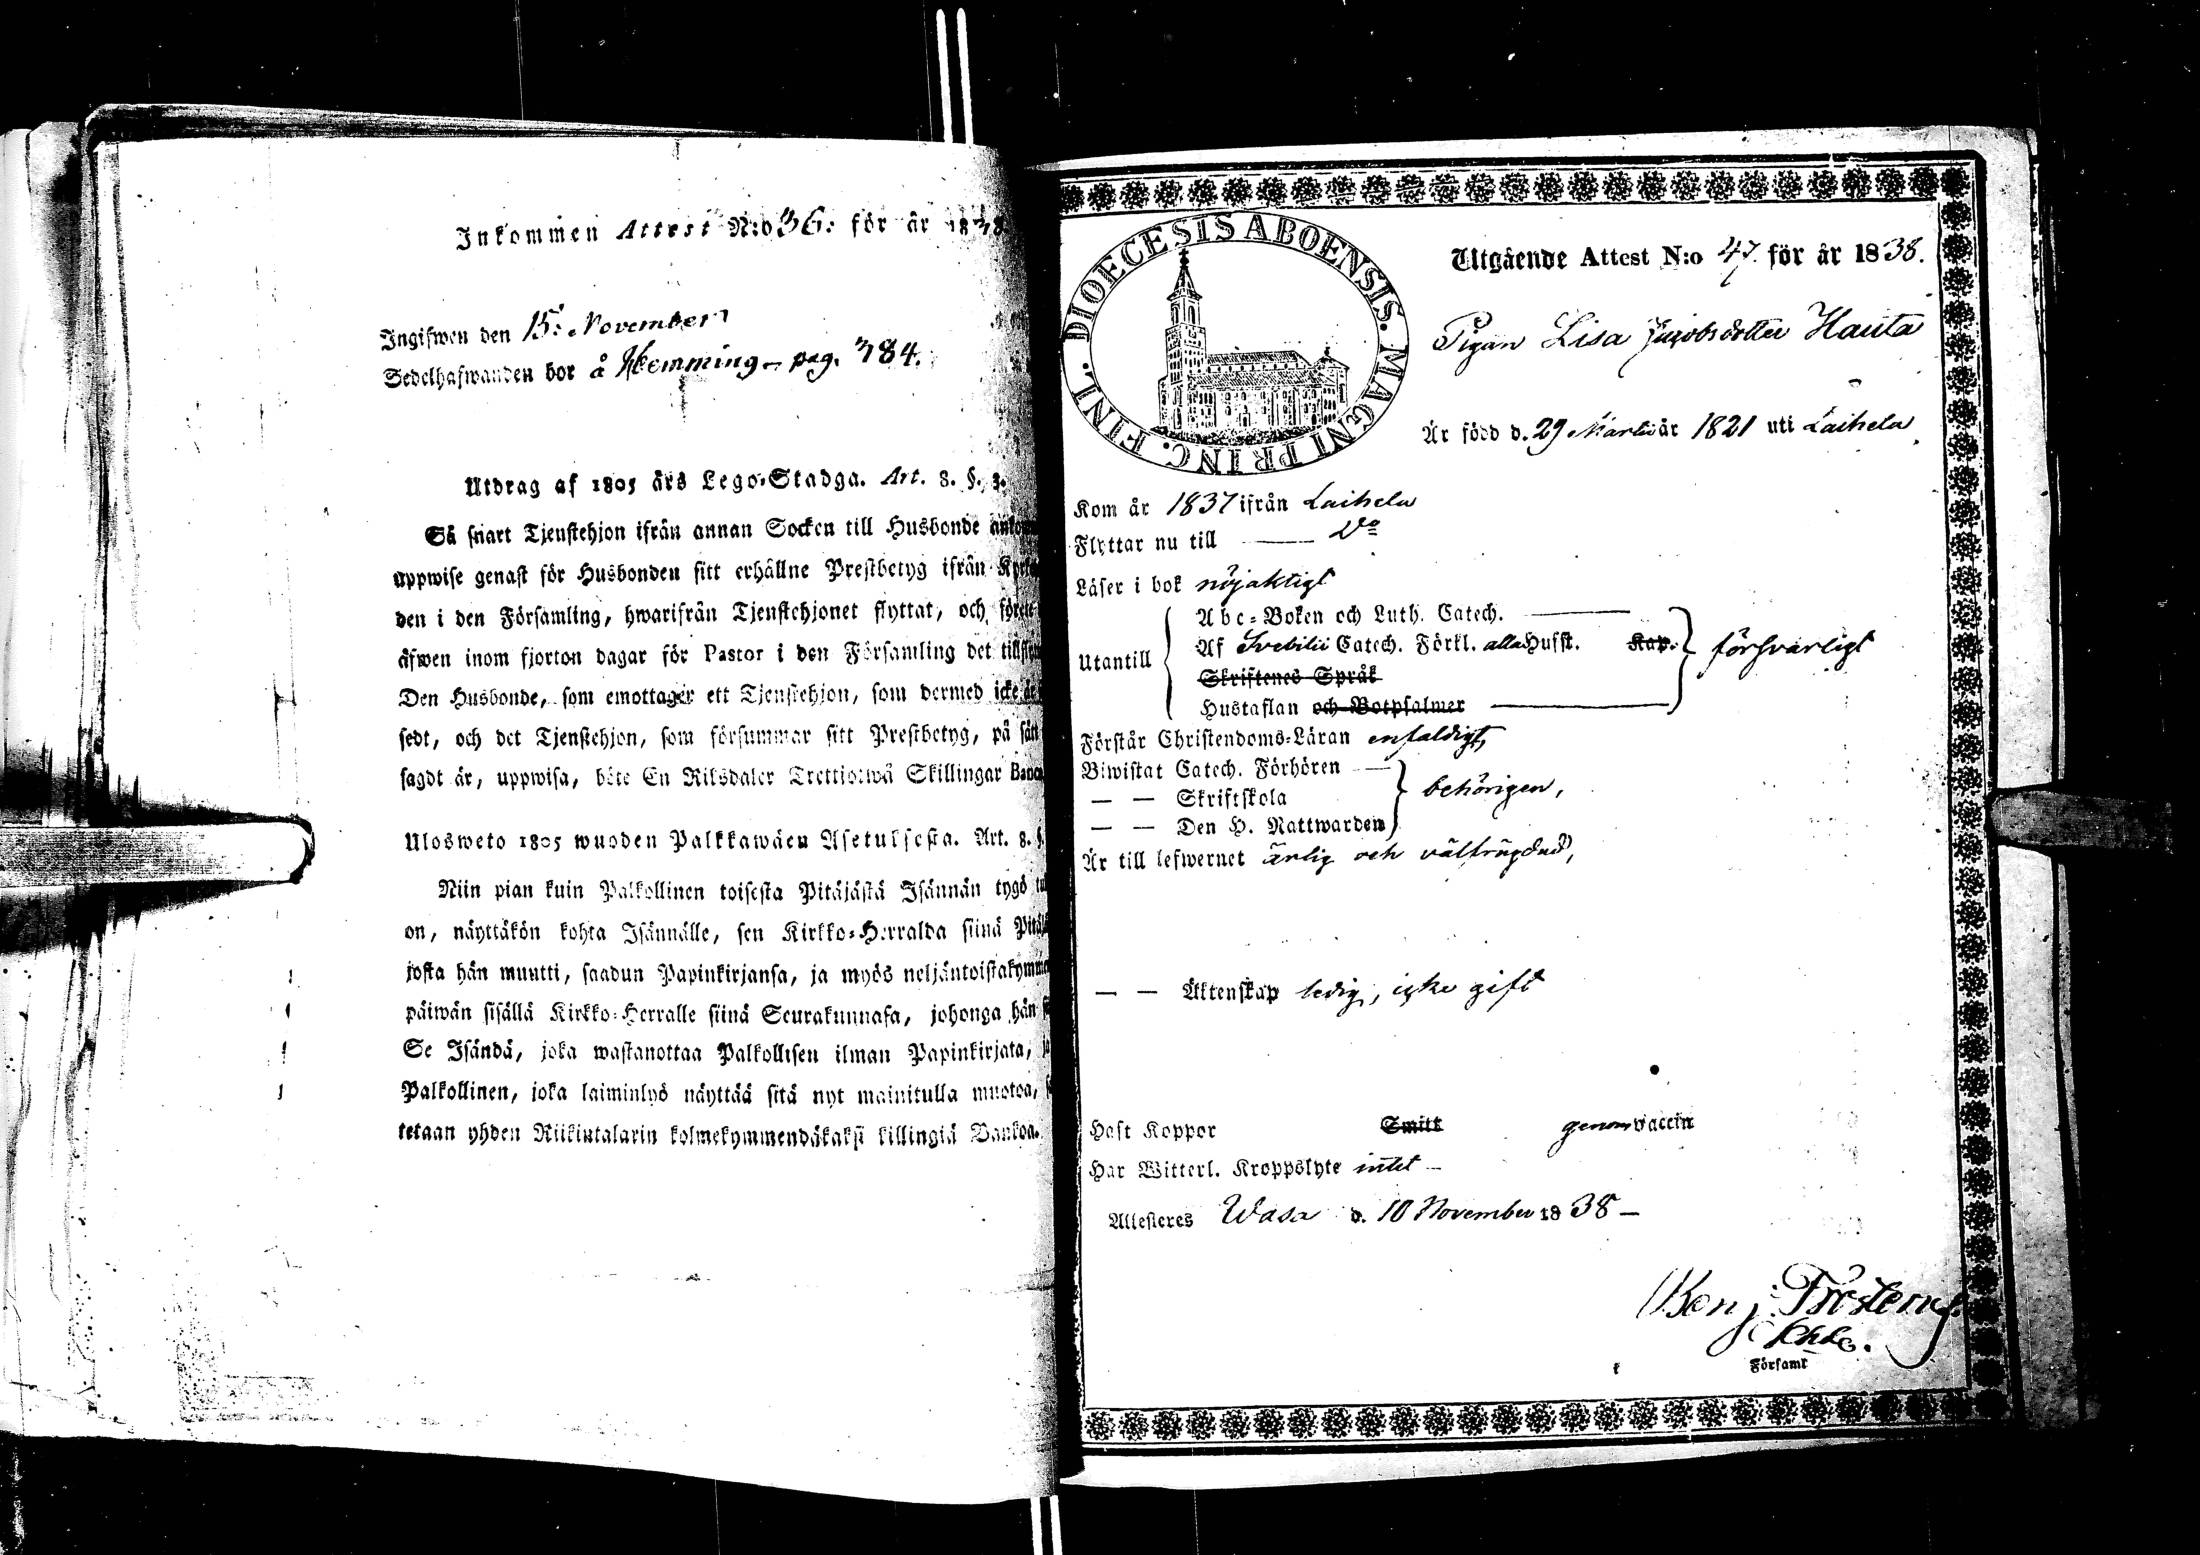 Inkommen Attest N:o 36: för år 1838
Ingifwen den 15: November
Sedelhafwanden bor å Hemming – pag. 384.
Utdrag af 1805 års Lego-Stadga. Art. 8. §. 3.
Så snart Tjenstehjon ifrån annan Socken till Husbonde
uppwise genast för Husbonden sitt erhållne Prestbetyg ifrån
den i den Församling, hwarifrån Tjenstehjonet flyttat, och
äfwen inom fjorton dagar för Pastor i den Församling det
Den Husbonde, som emottager ett Tjenstehjon, som dermed icke
sedt, och det Tjenstehjon, som försummar sitt Prestbetyg, på sätt
sagdt är, uppwisa, böte En Riksdaler Trettiotwå Skillingar Banco
Ulosweto 1805 wuoden Palkkawäen Asetuksesta. Art. 8. §.
Niin pian kuin Palkollinen toisesta Pitäjästä Isännän tygö
on, näyttäkön kohta Isännälle, sen Kirkko-Herralda siinä
josta hän muutti, saadun Papinkirjansa, ja myös neljäntoistakymmenen
päiwän sisällä Kirkko-Herralle siinä Seurakunnasa, johonga hän
Se Isändä, joka wastanottaa Palkollisen ilman Papinkirjata,
Palkollinen, joka laiminlyö näyttää sitä nyt mainitulla muotoa,
tetaan yhden Riikintalarin kolmekymmendäkaksi killingiä Bankoa.
DIOECESIS ABOENSIS. MAGNI PRINC. FINL.
Utgående Attest N:o 47. för år 1838.
Pigan Lisa Jacobsdotter Hauta
Är född d. 29 Martii år 1821 uti Laihela
Kom år 1837 ifrån Laihela
Flyttar nu till —— Do
Läser i bok nöjaktigt
Utantill
Abc-Boken och Luth. Catech. ——
Af Svebilii Catech. Förkl. alla Hufst. Kap.
Skriftenes Språk
Hustaflan och Botpsalmer ——
försvarligt
Förstår Christendoms-Läran enfaldigt,
Biwistat Catech. Förhören —
— — Skriftskola
— — Den H. Nattwarden
behörigen,
Är till lefwernet ärlig och välfrägdad,
— — Äktenskap ledig, icke gift
Haft Koppor Smitt genom vaccin
Har Witterl. Kroppslyte intet –
Attesteres Wasa d. 10 November 1838 –
Benj. Frosterus
Församl